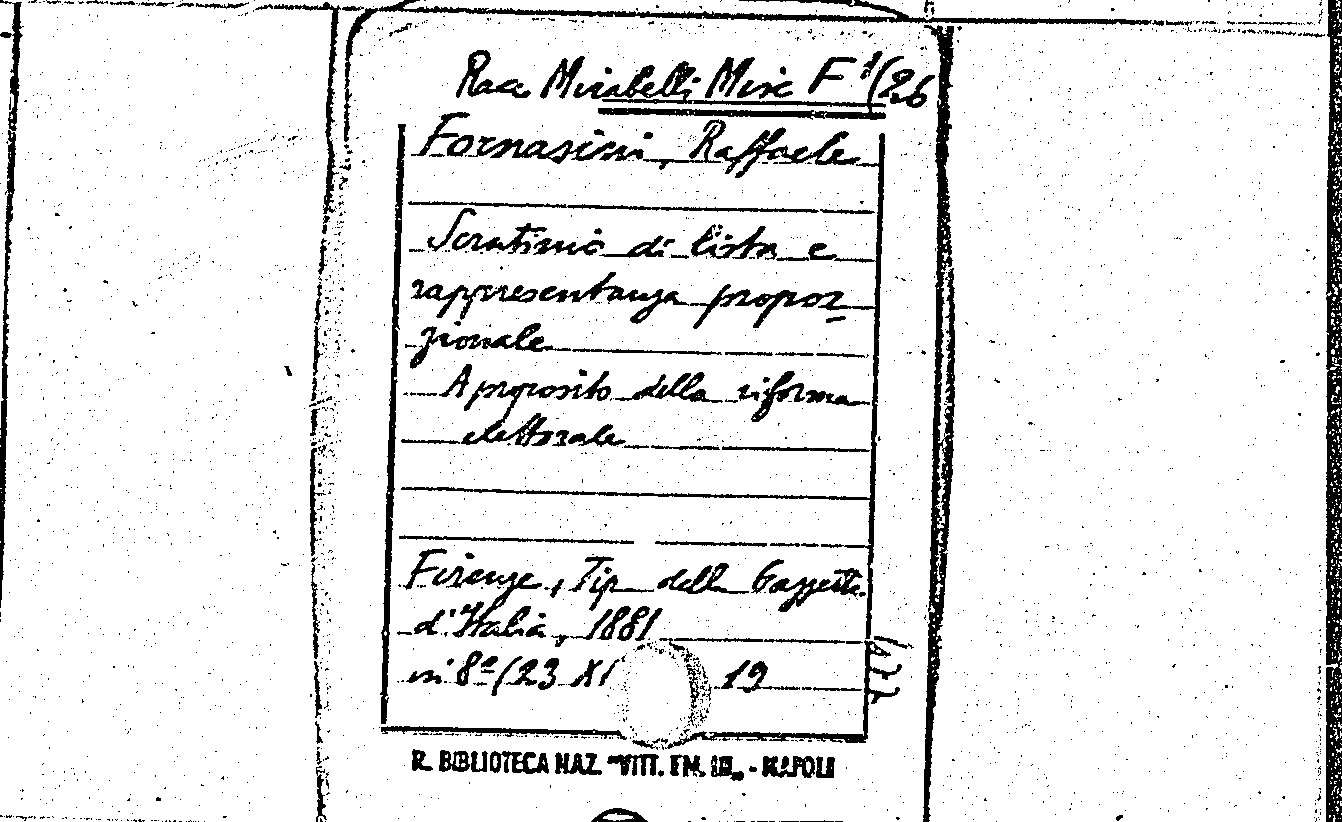 Racc Mirabelli Misc F 1/26
Fornasini, Raffaele
Scrutinio di lista e
rappresentanza propor
zionale
A proposito della riforma
elettorale
Firenze, Tip della Gazzetta
d'Italia, 1881
in 8º (23 XI 19
R. BIBLIOTECA NAZ. "VITT. EM. III„ - NAPOLI